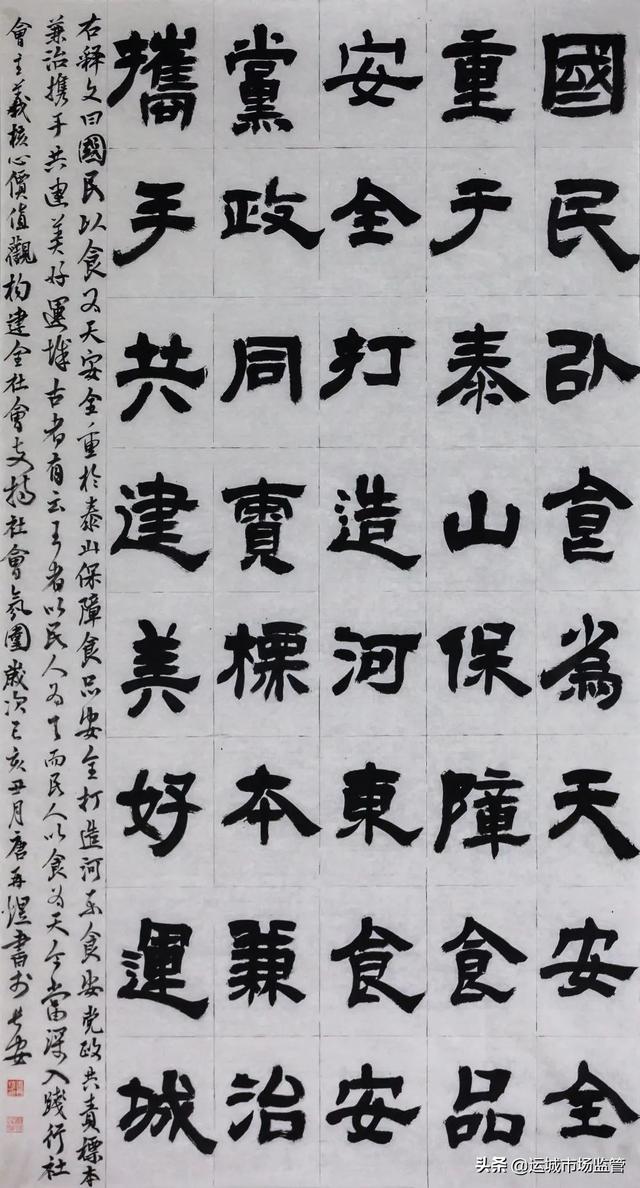 國民以食爲天安全
重于泰山保障食品
安全打造河東食安
黨政同責標本兼治
攜手共建美好運城
右释文曰國民以食为天安全重於泰山保障食品安全打造河东食安党政共责標本
兼治携手共建美好運城古者有云王者以民人为天而民人以食为天今當深入踐行社
會主義核心價值觀构建全社會支持社會氛圍歲次己亥丑月唐再書於长安
头条 @运城市场监管